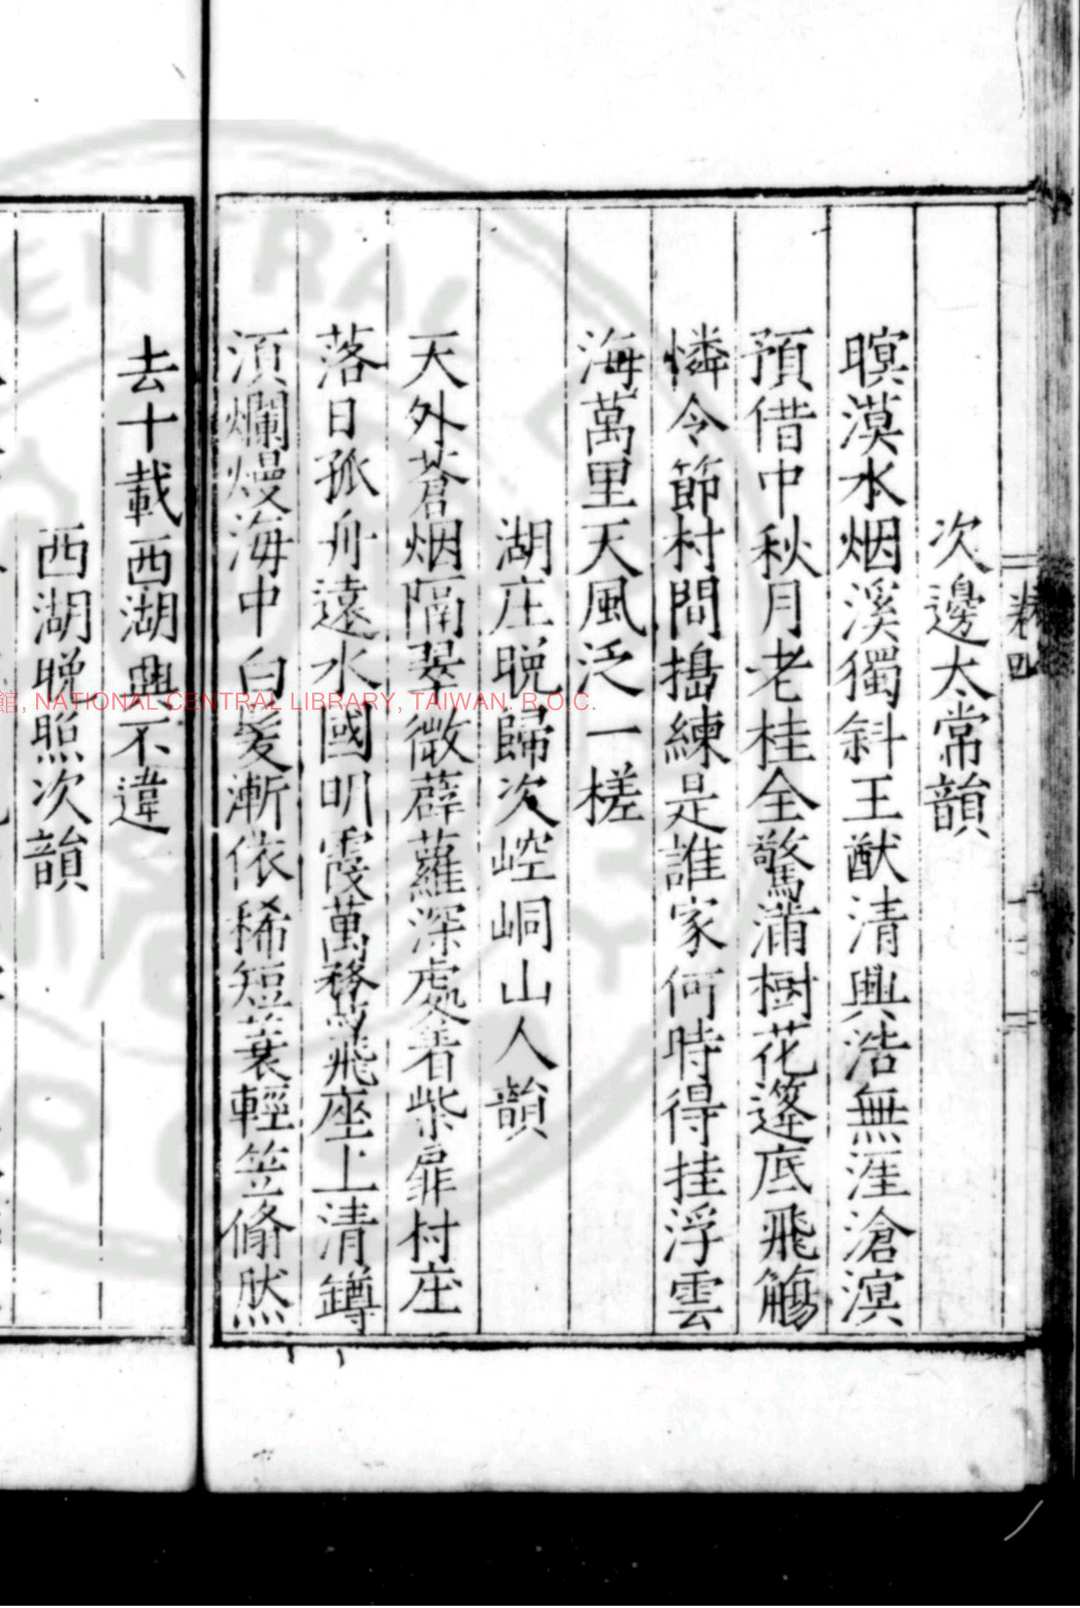 次邊太常韻
暝漠水烟溪獨斜王猷清興浩無涯滄溟
預借中秋月老桂全驚滿樹花篷底飛觴
憐令節村間搗練是誰家何時得挂浮雲
海萬里天風泛一槎
湖庄晚歸次崆峒山人韻
天外蒼烟隔翠微薜蘿深處着柴扉村庄
落日孤舟遠水國明霞萬鶩飛座上清罇
須爛熳海中白髮漸依稀短蓑輕笠翛然
去十載西湖興不違
西湖晚照次韻
NATIONAL CENTRAL LIBRARY, TAIWAN. R.O.C.